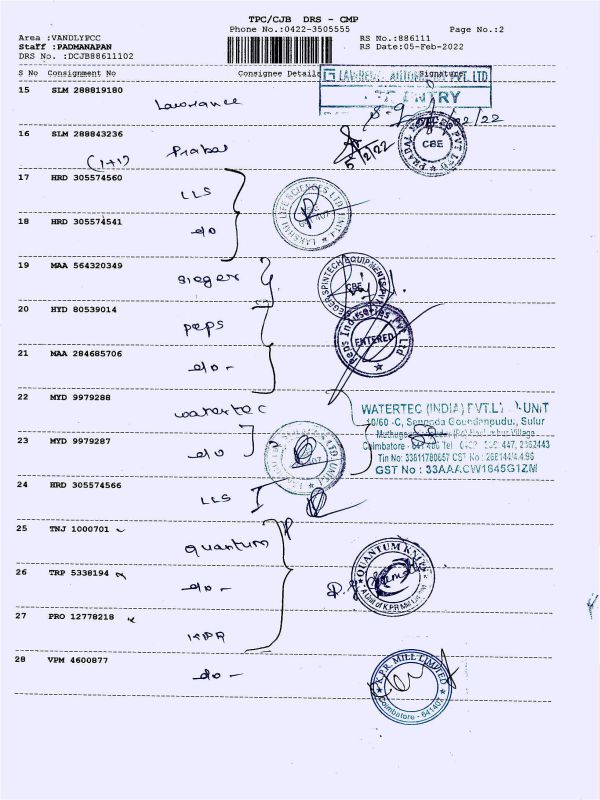 TPC/CJB DRS - CMP
Phone No.:0422-3505555 Page No.:2
Area :VANDLYPCC RS No.:886111
Staff :PADMANAPAN RS Date:05-Feb-2022
DRS No. :DCJB88611102
S No Consignment No Consignee Details Signature
PVT. LTD
ENTRY
15 SLM 288819180
Lawrance
/02/22
16 SLM 288843236
(1+1) Prabal
5/2/22
CBE
17 HRD 305574560
LLS
LAKSHMI LIFE SCIENCES LTD
18 HRD 305574541
do
19 MAA 564320349
Sieger
SPINTECH EQUIPMENTS
CBE
20 HYD 80539014
Peps
Peps Industries Pvt Ltd
ENTERED
21 MAA 284685706
do -
22 MYD 9979288
Watertec
WATERTEC (INDIA) PVT.L UNIT
10/60 -C, Sulur
23 MYD 9979287
do
Coimbatore - Tel 447, 2362443
Tin No: 33811780657 CST No : 268144/4.4.96
GST No : 33AAACW1645G1ZM
24 HRD 305574566
LLS
25 TNJ 1000701
Quantum
QUANTUM KNITS
A Unit of K.P.R Mill Limited
26 TRP 5338194
do -
27 PRO 12778218
KPR
28 VPM 4600877
do -
K.P.R. MILL LIMITED
Coimbatore - 641407